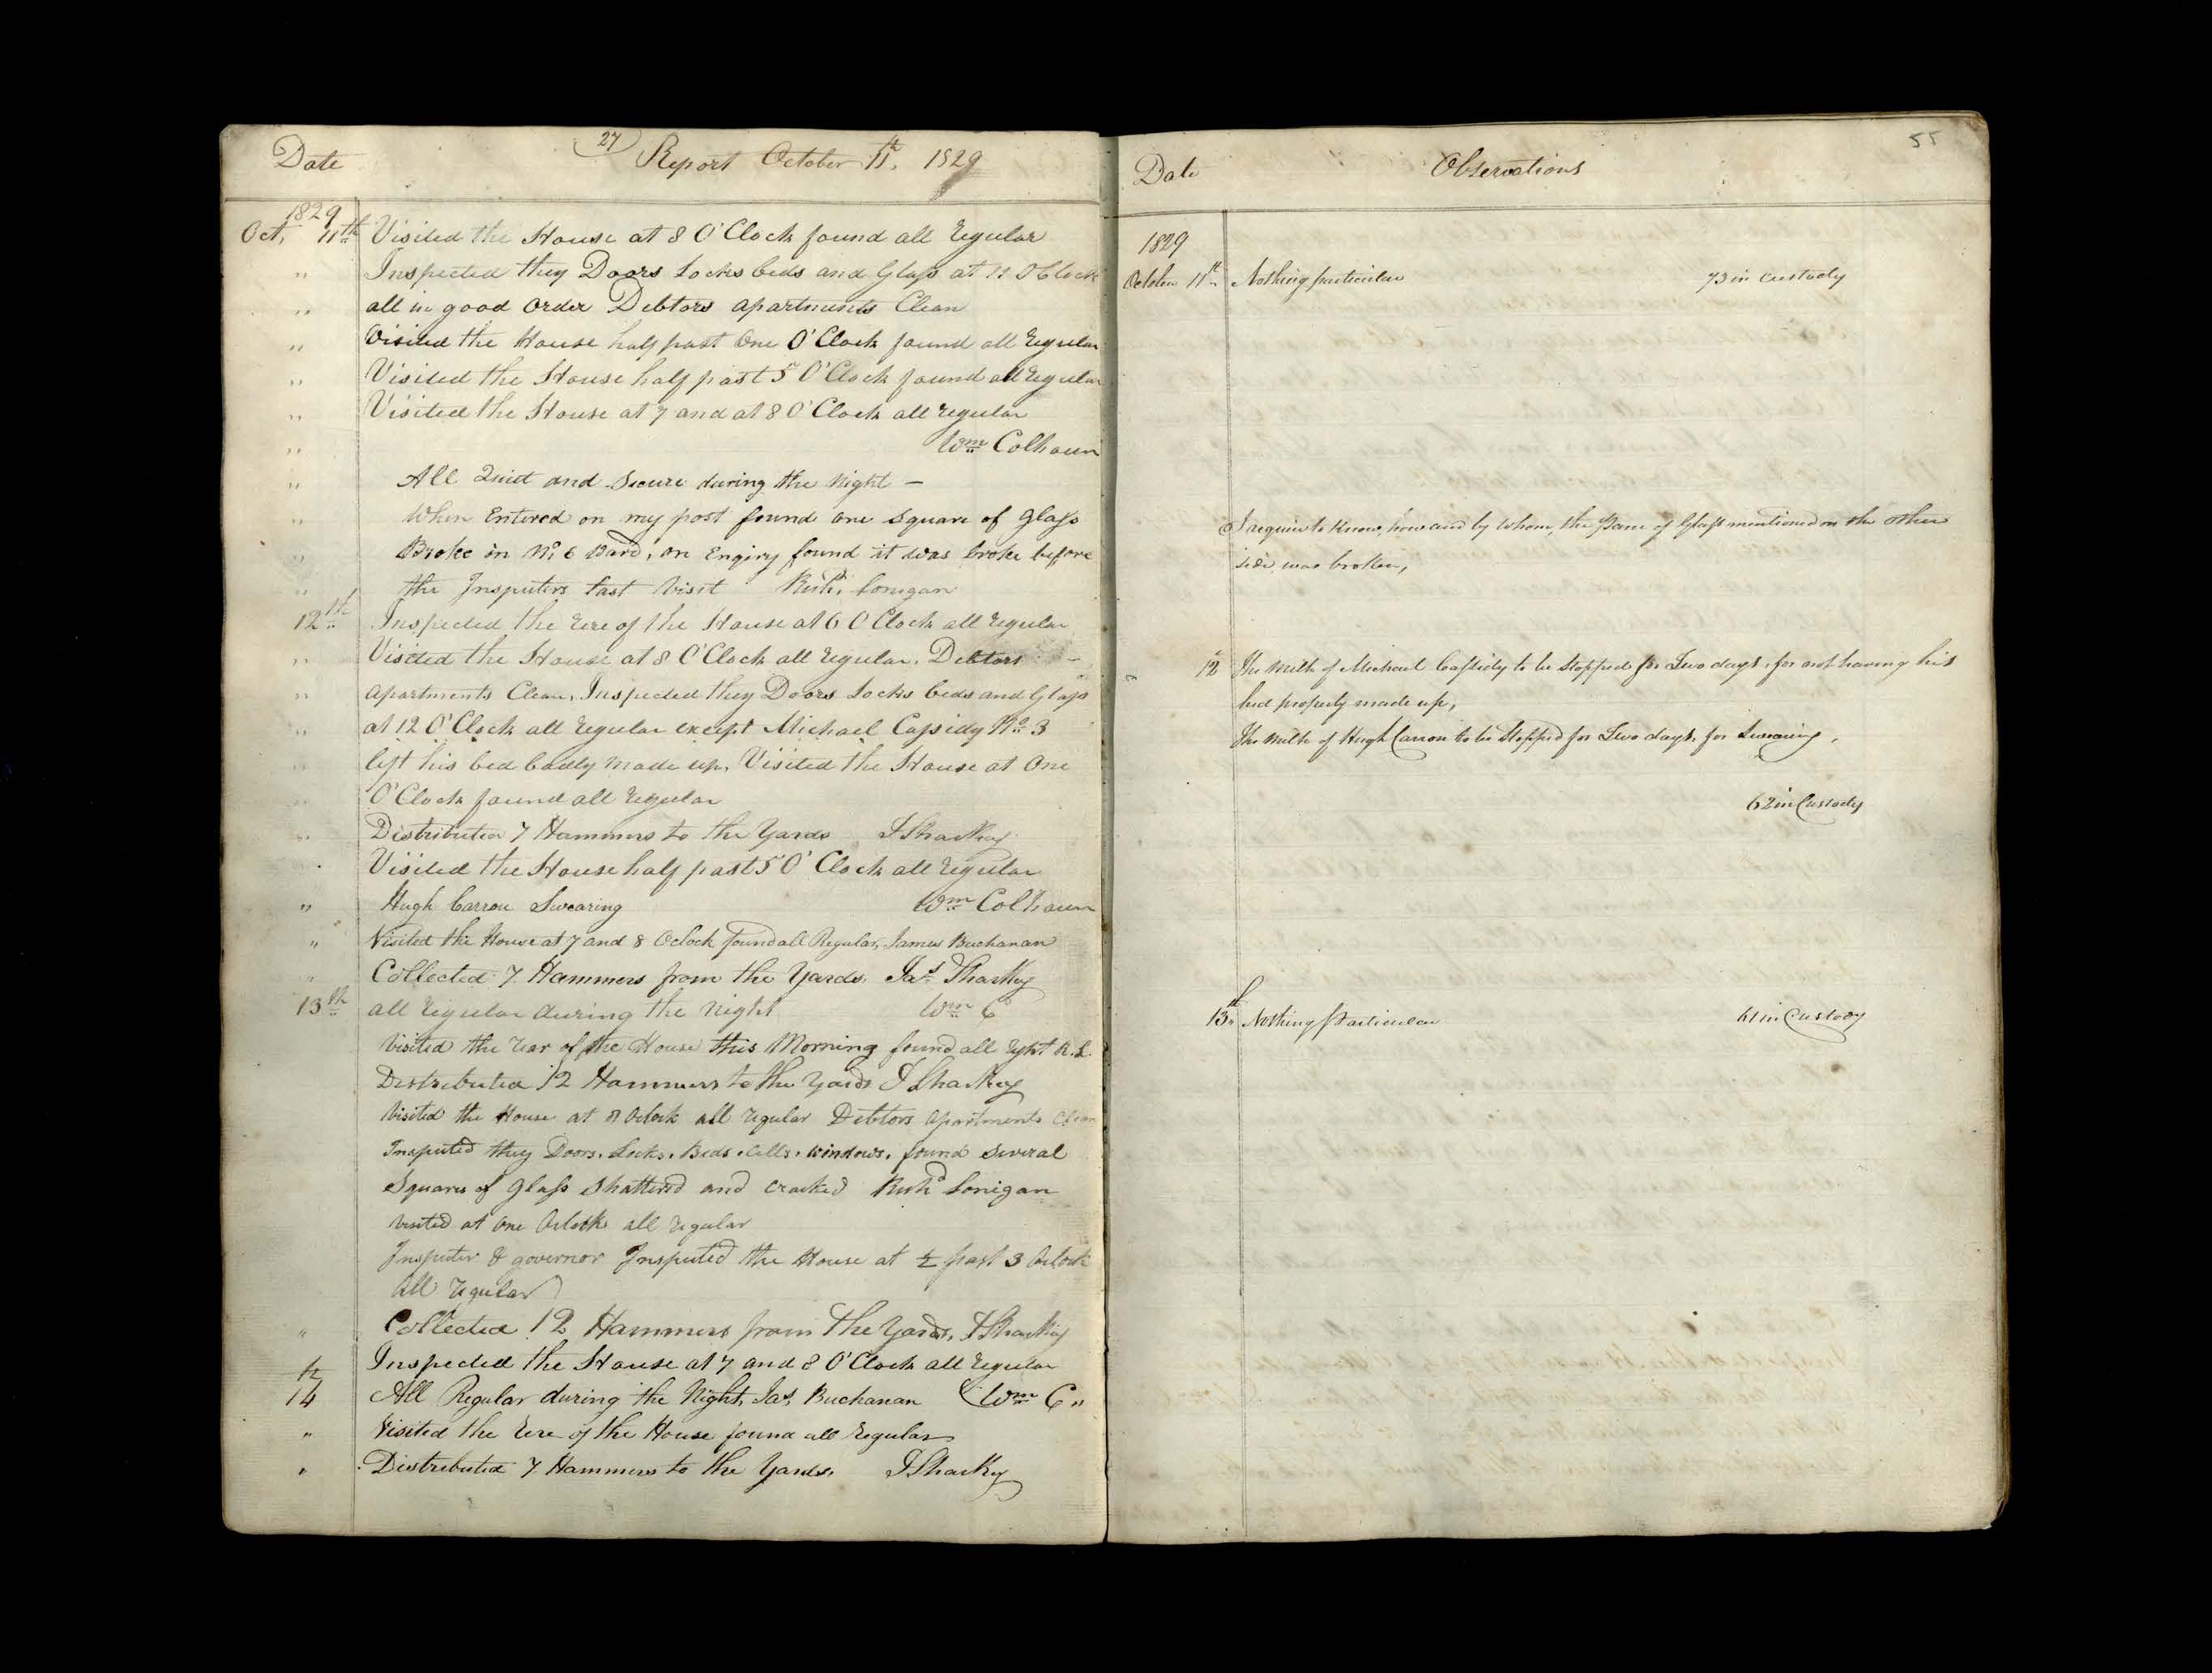 Date
27
Report October 11th. 1829
1829
Oct. 11th Visited the House at 8 O'Clock found all regular
" Inspected they Doors Locks beds and Glass at 12 O'Clock
" all in good order Debtors apartments Clean
" Visited the House half past One O'Clock found all regular
" Visited the House half past 5 O'Clock found all regular
" Visited the House at 7 and at 8 O'Clock all regular
" Wm Colhoun
" All Quiet and Secure during the Night —
" When Entered on my post found one Square of Glass
" Broke in No. 6 Pard, on Enqiry found it was broke before
" the Inspecters Last Visit Richd. Lonigan
12th Inspected the rere of the House at 6 O'Clock all regular
" Visited the House at 8 O'Clock all regular. Debtors –
" apartments Clean, Inspected they Doors Locks beds and Glass
" at 12 O'Clock all regular except Michael Cassidy No. 3
" left his bed badly made up, Visited the House at One
" O'Clock found all regular
" Distributed 7 Hammers to the Yards J Sharkey
Visited the House half past 5 O'Clock all regular
" Hugh Carron Swearing Wm Colhoun
" Visited the House at 7 and 8 Oclock found all Regular, James Buchanan
" Collected 7 Hammers from the Yards. Jas Sharkey
13th all regular during the night Wm C
Visited the rear of the House this Morning found all right R. L.
Distributed 12 Hammers to the Yards J Sharkey
Visited the House at 8 Oclock all regular Debtors apartments Clean
Inspected they Doors, Locks, Beds, Cells, windows, found several
Squares of Glass Shattered and cracked Richd Lonigan
Visited at one Oclock all regular
Inspecter & governor Inspected the House at ½ past 3 Oclock
All regular
" Collected 12 Hammers from the Yards, J Sharkey
Inspected the House at 7 and 8 O'Clock all regular
14th All Regular during the Night, Jas. Buchanan Wm C"
" Visited the rere of the House found all regular
" Distributed 7 Hammers to the Yards. J Sharkey
55
Date Observations
1829
October 11th Nothing particular 73 in custody
I require to know, how and by whom, the Pane of Glass mentioned on the other
side was broken,
12 The milk of Michael Cassidy to be stopped for Two days, for not having his
bed properly made up,
The milk of Hugh Carron to be stopped for Two days, for swearing,
62 in Custody
13th Nothing Particular 61 in Custody